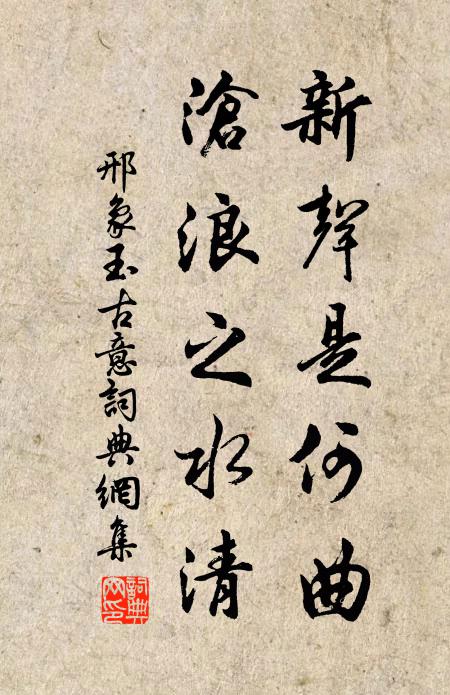 新聲是何曲
滄浪之水清
邢象玉古意詞典網集
詞典